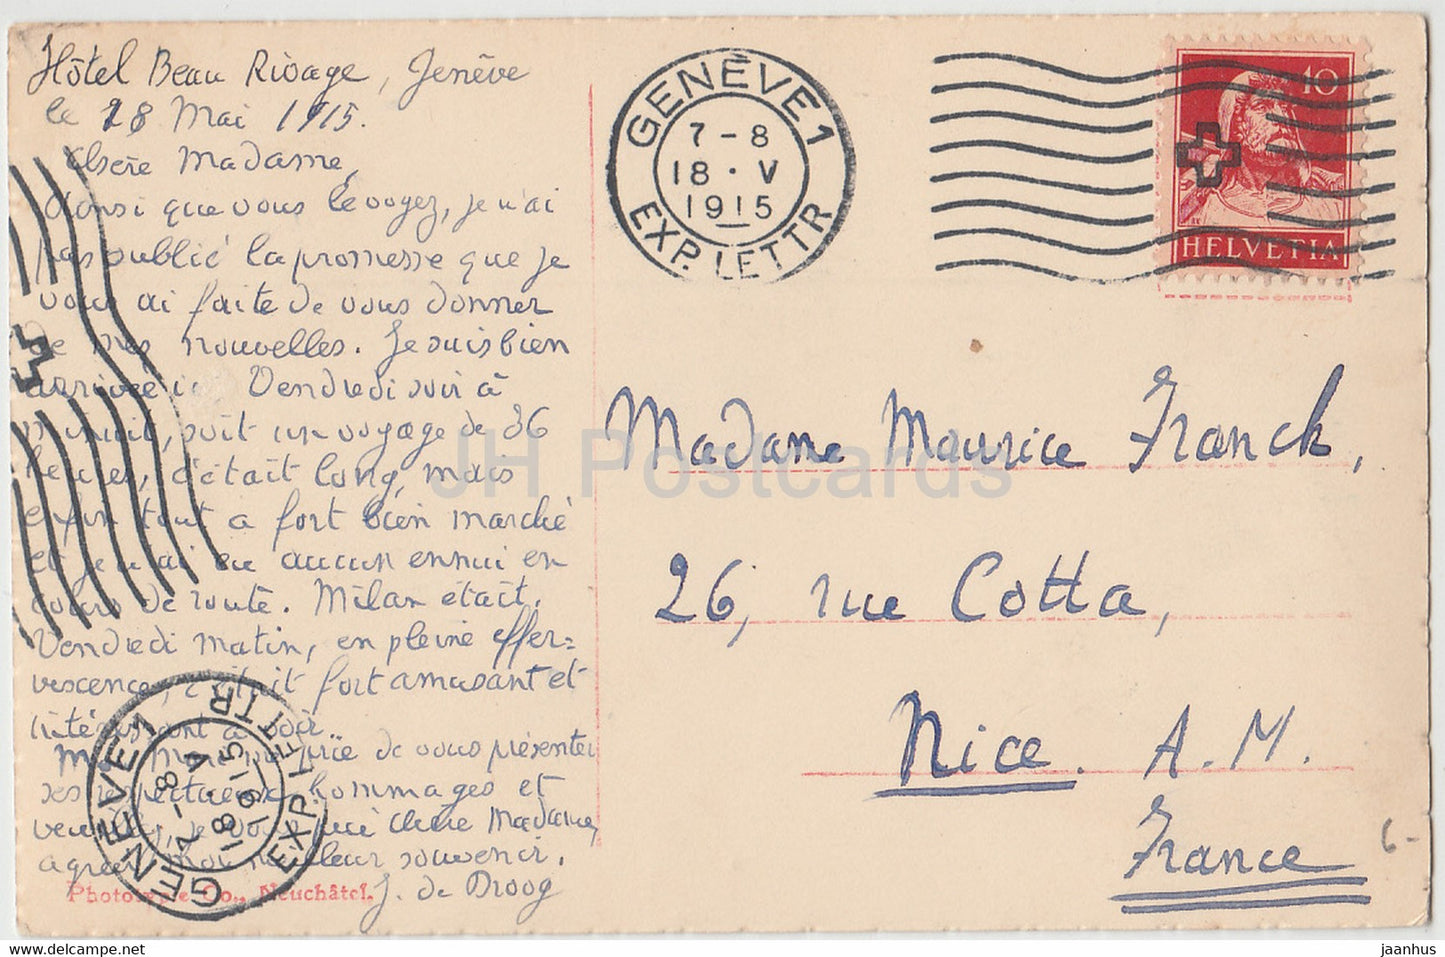 Hôtel Beau Rivage, Genève
le 18 Mai 1915.
Chère Madame,
Ainsi que vous le voyez, je n'ai
pas oublié la promesse que je
vous ai faite de vous donner
de mes nouvelles. Je suis bien
arrivée ici Vendredi soir à
minuit, soit un voyage de 36
heures, c'était long, mais
enfin tout a fort bien marché
et je n'ai eu aucun ennui en
cours de route. Milan était,
Vendredi matin, en pleine effer=
vescence, c'était fort amusant et
intéressant à voir.
Mon Mari me prie de vous présenter
ses respectueux hommages et
veuillez, je vous prie chère Madame,
agréer mon meilleur souvenir.
J. de Droog
Phototypie Co., Neuchâtel.
GENÈVE 1
7-8
18·V
1915
EXP. LETTR
10
HELVETIA
Madame Maurice Franck,
26, rue Cotta,
Nice. A. M.
France
6-
GENÈVE 1
7-8
18·V
1915
EXP. LETTR
JH Postcards
jaanhus